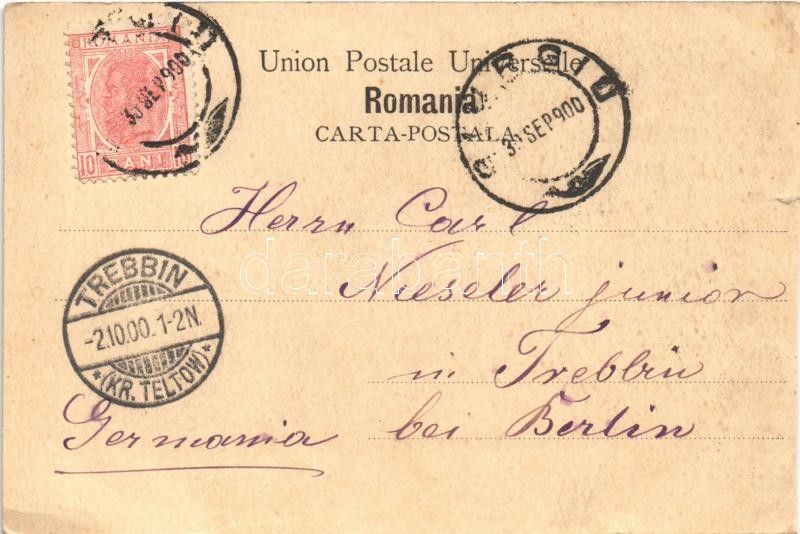 ROMANIA
10 BANI 10
30 SEP 900
Union Postale Universelle
Romania
CARTA-POSTALA
GIURGIU
30 SEP 900
Herrn Carl
Nieseler junior
in Trebbin
bei Berlin
Germania
TREBBIN
-2.10.00.1-2N.
*(KR. TELTOW)*
darabanth